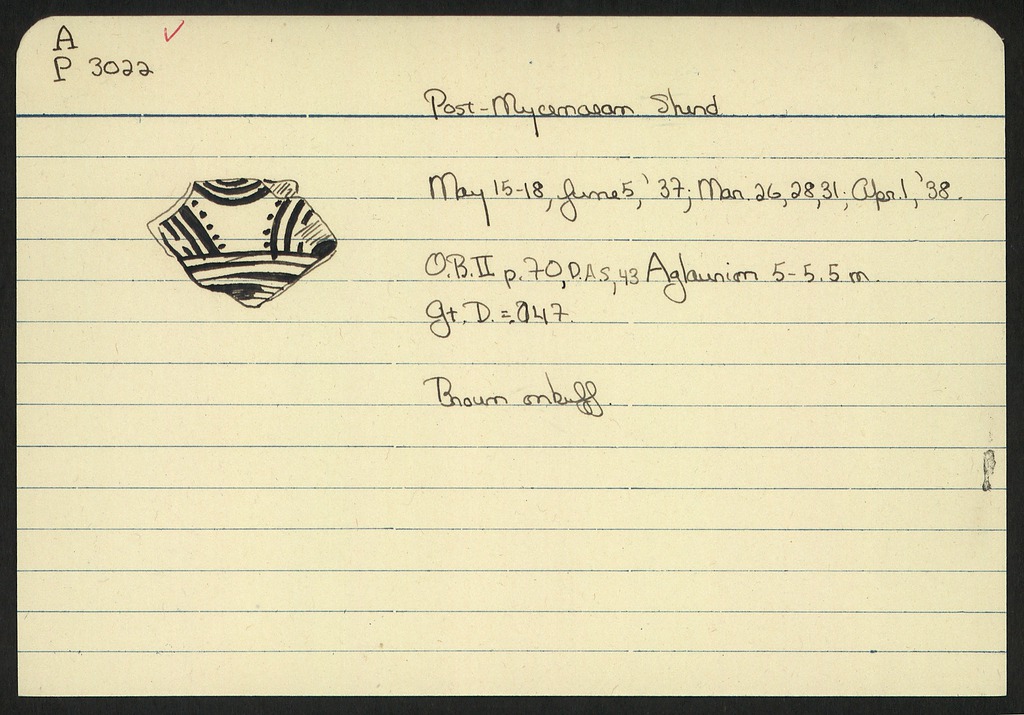 A
P 3022
Post-Mycenaean Sherd
May 15-18, June 5, '37; Mar. 26, 28, 31; Apr. 1, '38.
O.B. II p. 70, D.A.S, 43 Aglaurion 5-5.5 m.
Gt. D. = .047.
Brown on buff.